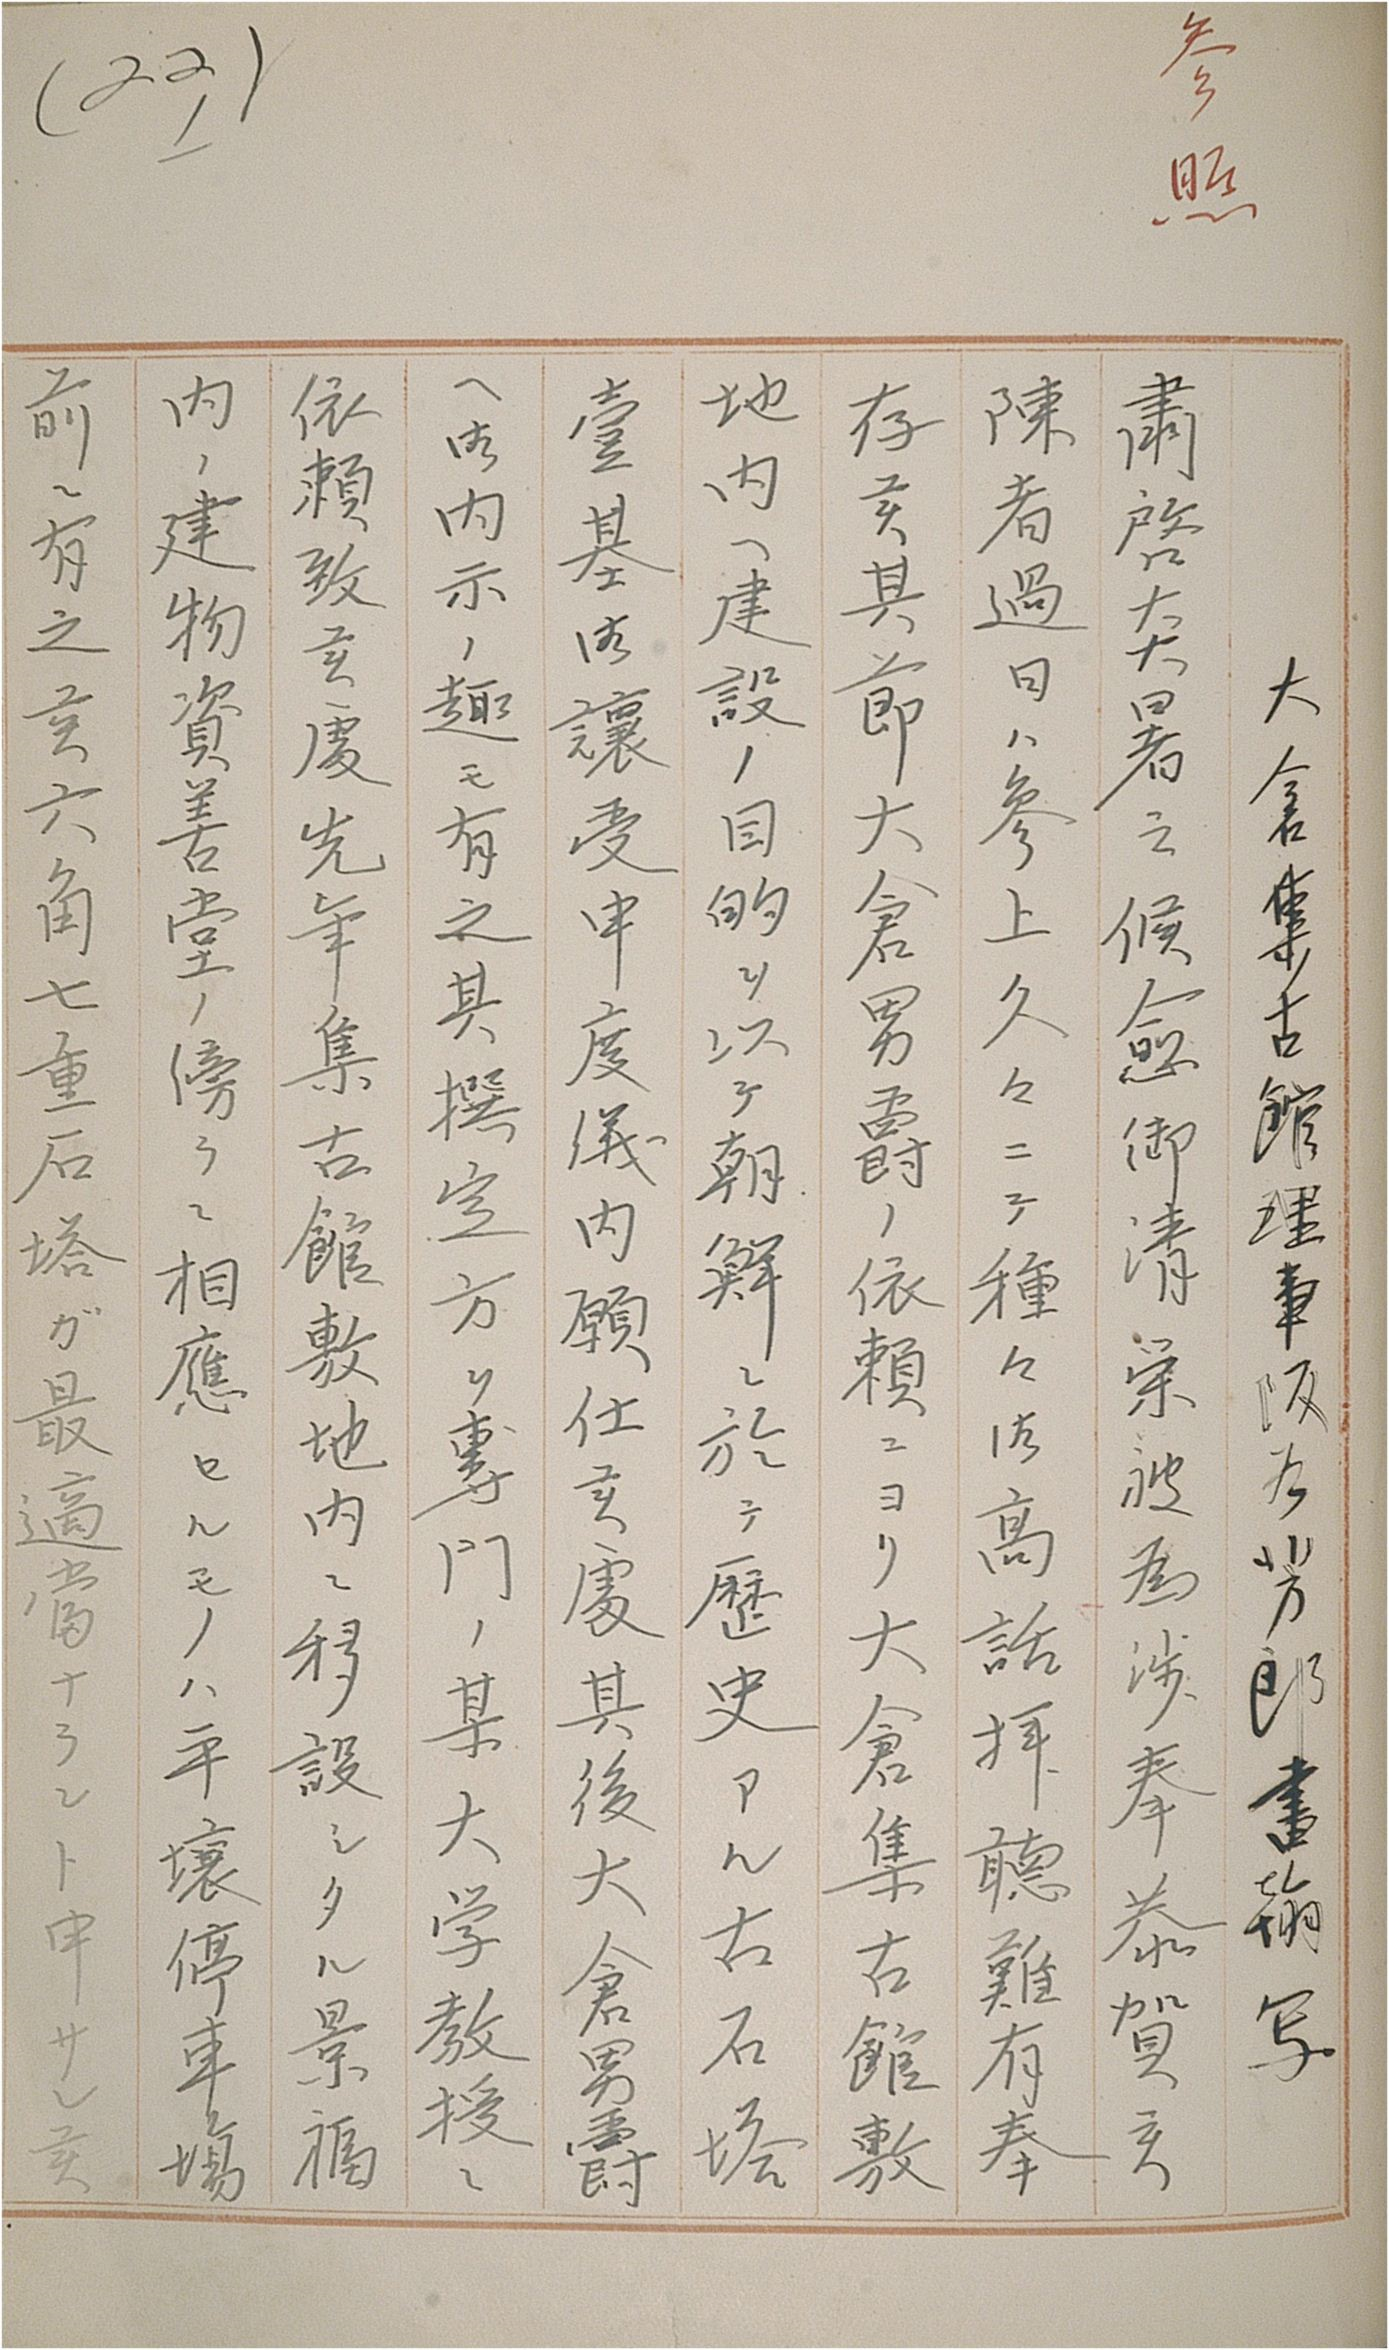 参照
(22/1)
大倉集古館理事阪谷芳郎書翰写
肅啓大暑之候愈御清栄被為渉奉恭賀候
陳者過日ハ參上久々ニテ種々御高話拝聴難有奉
存候其節大倉男爵ノ依頼ニヨリ大倉集古館敷
地内ヘ建設ノ目的ヲ以テ朝鮮ニ於テ歴史アル古石塔
壹基御讓受申度儀内願仕候處其後大倉男爵
ヘ御内示ノ趣モ有之其撰定方ヲ專門ノ某大学教授ニ
依頼致候處先年集古館敷地内ニ移設シタル景福
内ノ建物資善堂ノ傍ラニ相應セルモノハ平壤停車場
前ニ有之候六角七重石塔が最適當ナラント申サレ候